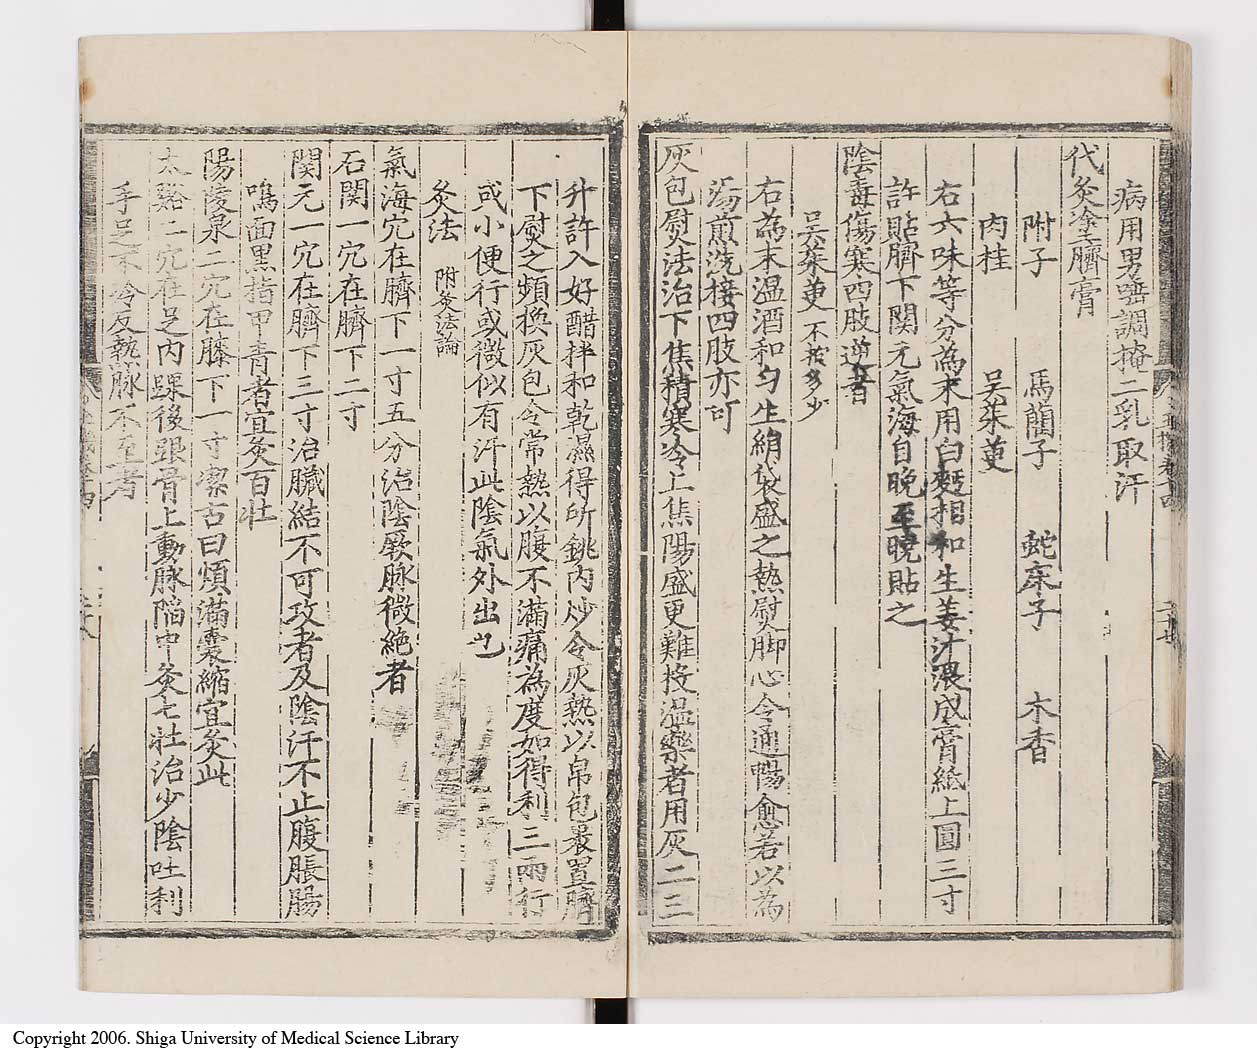 病用男
調掩二乳取汗
代灸塗臍膏
附子　馬藺子　蛇床子　木香
肉桂　吴茱萸
右六味等分為末用白麪相和生姜汁
成膏紙上圓三寸
許貼臍下関元氣海自晚至曉貼之
陰毒傷寒四肢逆者
吴茱萸不拘多少
右為末温酒和匀生絹袋盛之熱熨脚心令通暢愈若以為
湯煎洗接四肢亦可
灰包熨法治下焦積寒冷上焦陽盛更難投温藥者用灰二三
升許入好醋拌和乾濕得所銚内炒令灰熱以帛包裹置臍
下熨之頻換灰包令常熱以腹不滿痛為度如得利三兩行
或小便行或微似有汗此陰氣外出也
灸法　附灸法論
氣海穴在臍下一寸五分治陰厥脉微絶者
石関一穴在臍下二寸
関元一穴在臍下三寸治臟結不可攻者及陰汗不止腹脹腸
鳴面黒指甲青者宜灸百壯
陽陵泉二穴在膝下一寸潔古曰煩滿囊縮宜灸此
太谿二穴在足内踝後跟骨上動脉陷中灸七壯治少陰吐利
手足不冷反熱脉不至者
Copyright 2006. Shiga University of Medical Science Library